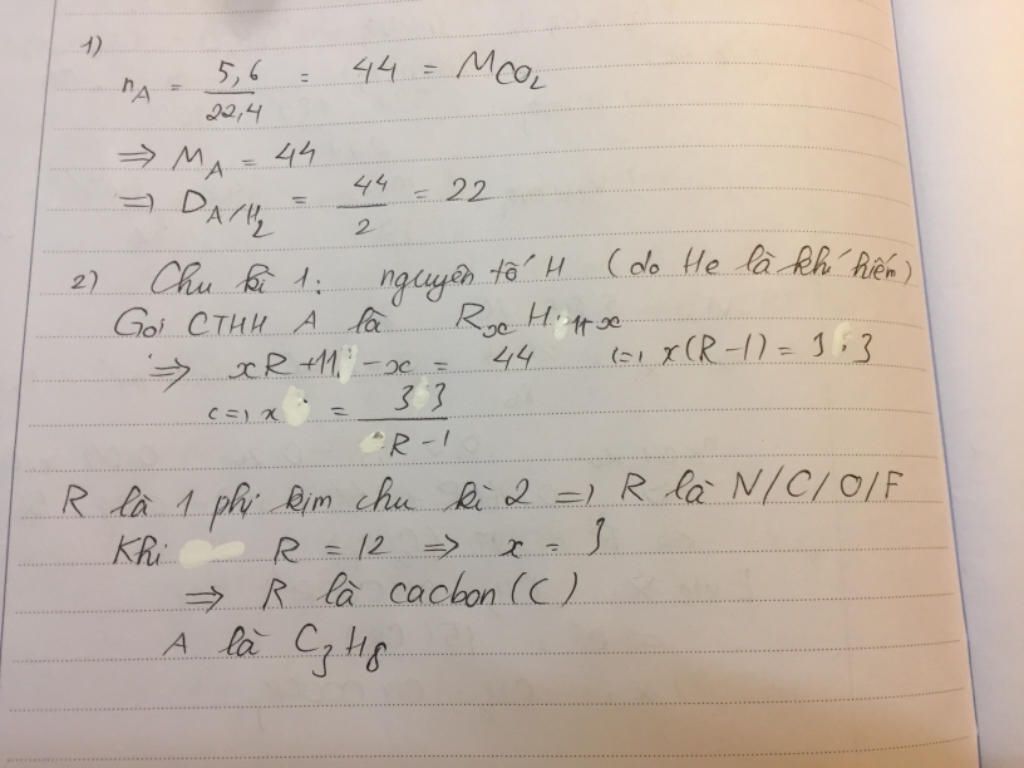 1)
nA = 5,6 / 22,4 = 44 = MCO2
⇒ MA = 44
⇒ DA/H2 = 44 / 2 = 22
2) Chu kì 1: nguyên tố H (do He là khí hiếm)
Gọi CTHH A là RxH11-x
⇒ xR + 11 - x = 44 (=) x(R-1) = 33
(=) x = 33 / R-1
R là 1 phi kim chu kì 2 => R là N/C/O/F
Khi R = 12 ⇒ x = 3
⇒ R là cacbon (C)
A là C3H8